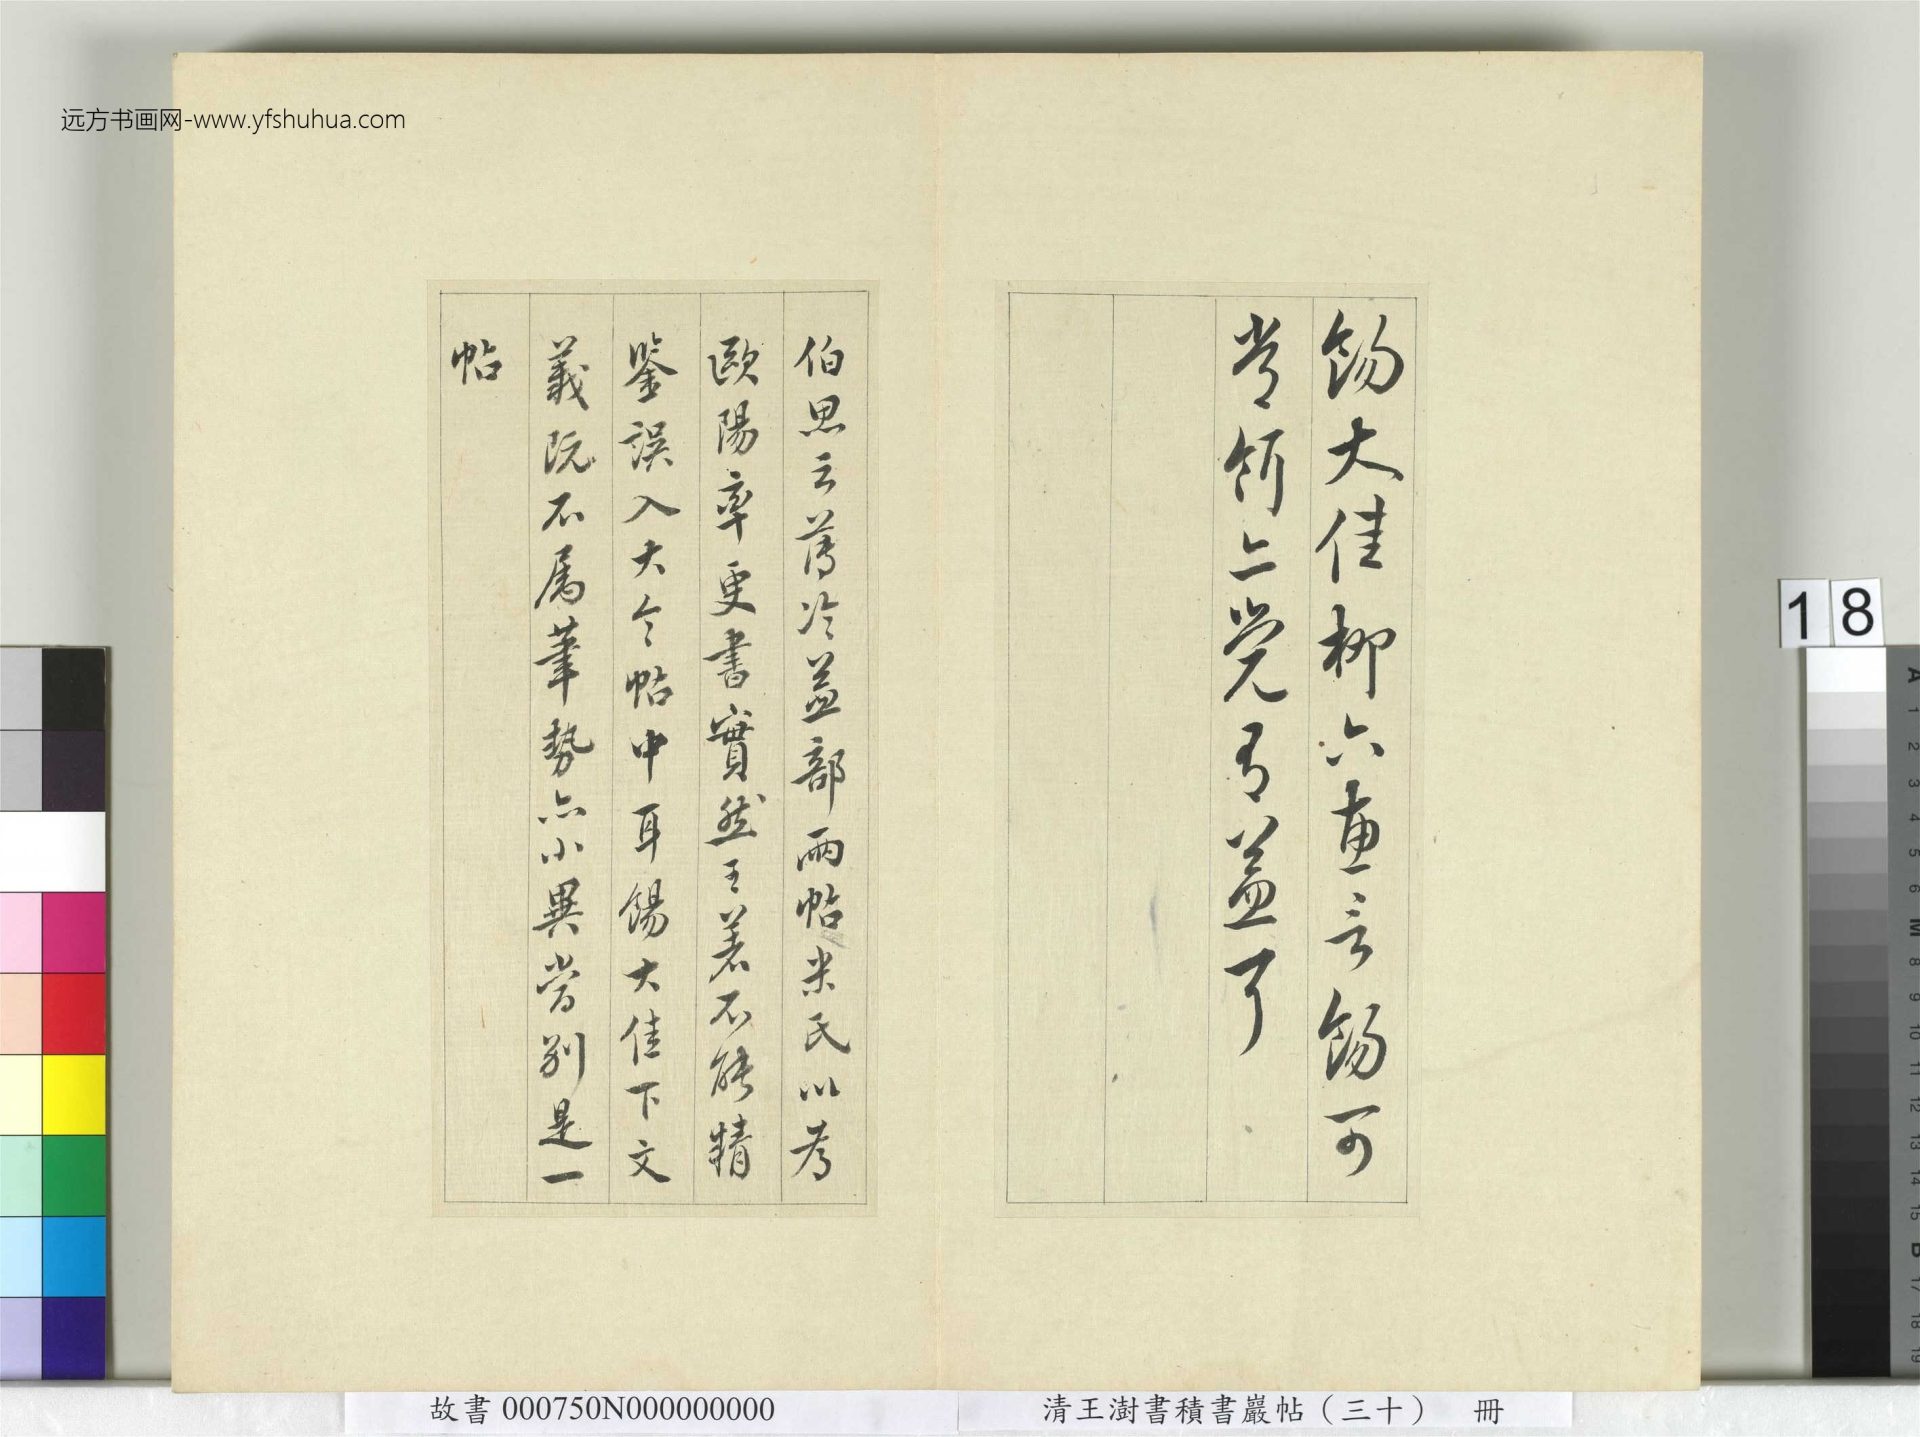 远方书画网-www.yfshuhua.com
餳大佳柳六惠言餳可
常領亦覺有益耳
伯思云薄冷益部兩帖米氏以為
歐陽率更書實然王著不能精
鑒誤入大令帖中耳餳大佳下文
義既不屬筆勢亦小異當別是一
帖
18
故書 000750N000000000
清王澍書積書巖帖（三十） 冊